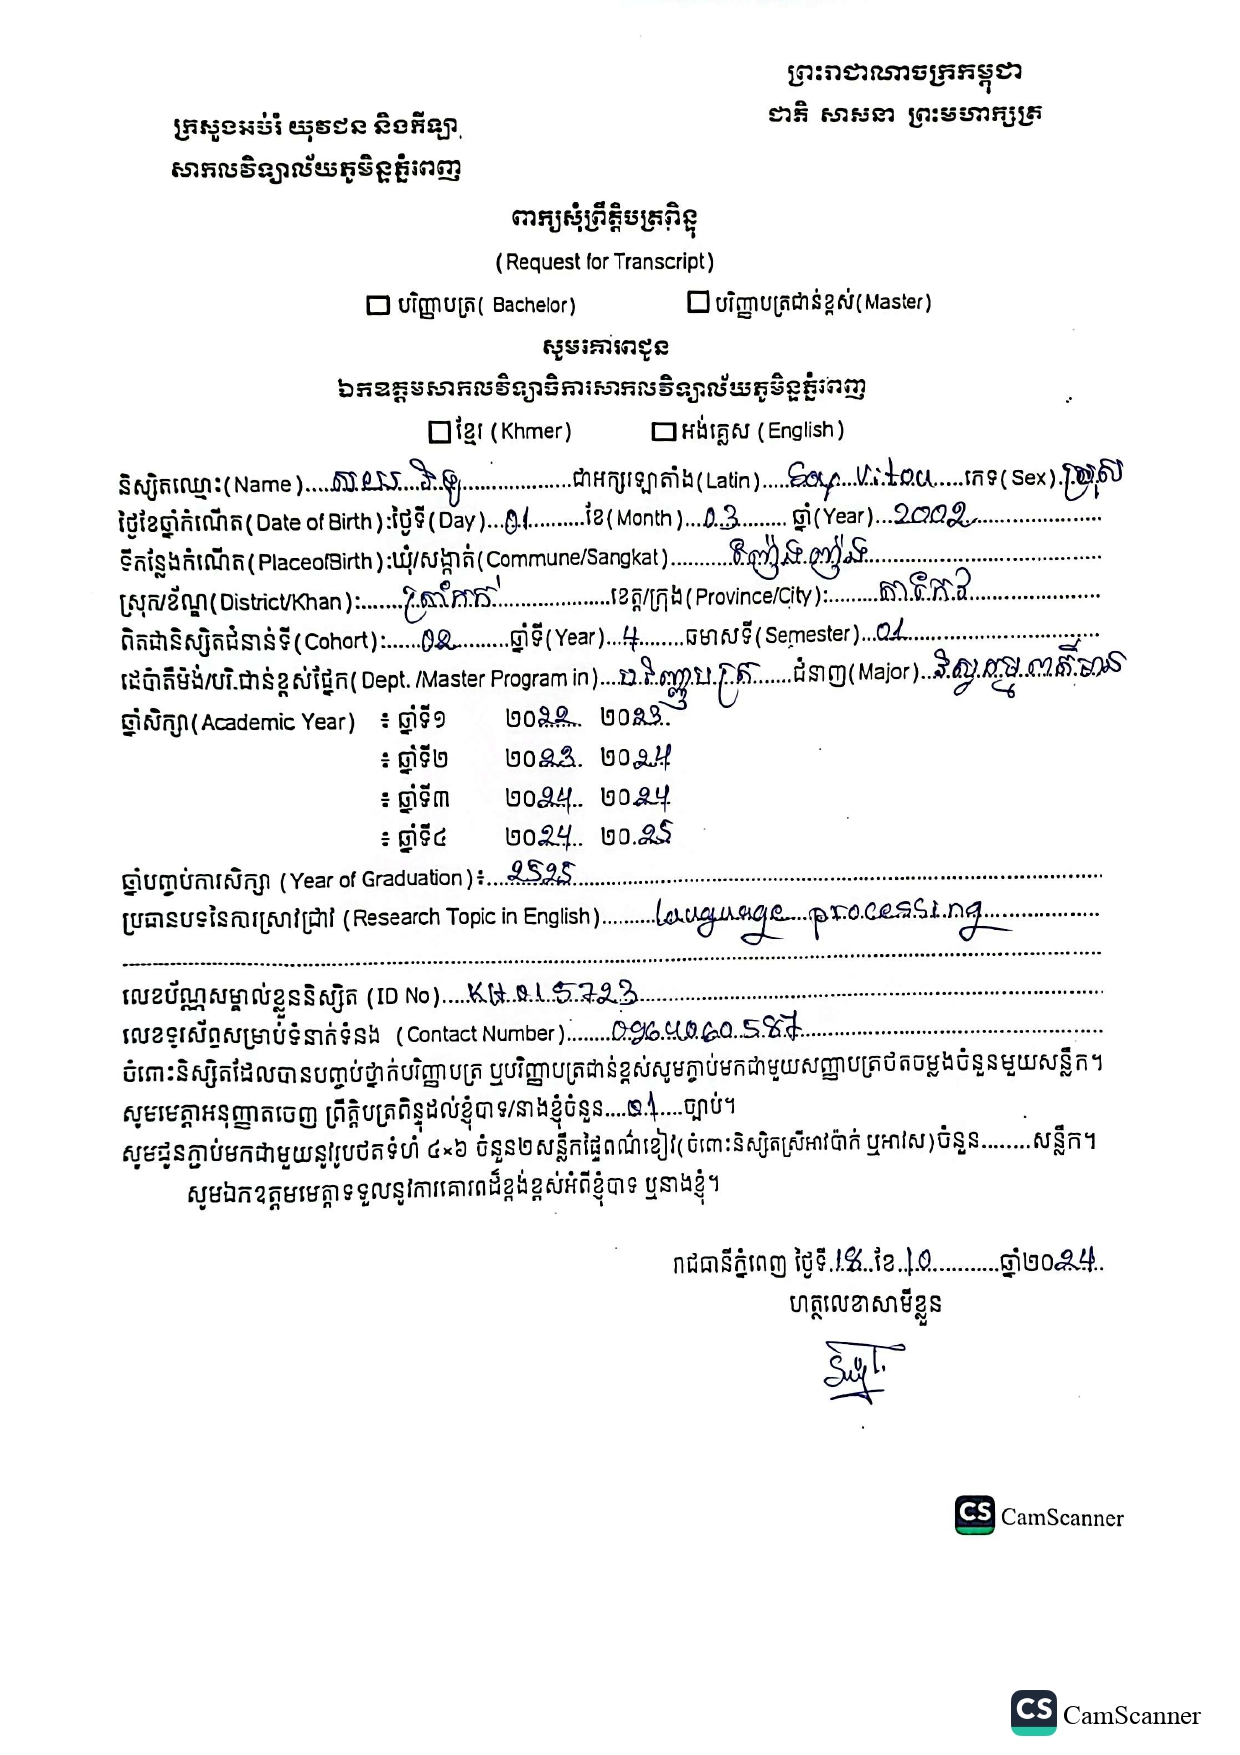 ព្រះរាជាណាចក្រកម្ពុជា
ជាតិ សាសនា ព្រះមហាក្សត្រ
ក្រសួងអប់រំ យុវជន និងកីឡា
សាកលវិទ្យាល័យភូមិន្ទភ្នំពេញ
ពាក្យសុំព្រឹត្តិបត្រពិន្ទុ
(Request for Transcript)
☐ បរិញ្ញាបត្រ( Bachelor) ☐ បរិញ្ញាបត្រជាន់ខ្ពស់(Master)
សូមគោរពជូន
ឯកឧត្តមសាកលវិទ្យាធិការសាកលវិទ្យាល័យភូមិន្ទភ្នំពេញ
☐ ខ្មែរ (Khmer) ☐ អង់គ្លេស (English)
និស្សិតឈ្មោះ(Name)....សាយ វិទូ................ជាអក្សរឡាតាំង(Latin).....Say Vitou.....ភេទ(Sex).ប្រុស
ថ្ងៃខែឆ្នាំកំណើត(Date of Birth):ថ្ងៃទី(Day)...01.........ខែ(Month)...03........ ឆ្នាំ(Year)...2002...................
ទីកន្លែងកំណើត(PlaceofBirth):ឃុំ/សង្កាត់(Commune/Sangkat)..........
ស្រុក/ខ័ណ្ឌ(District/Khan):......ត្រាំកក់..................ខេត្ត/ក្រុង(Province/City):........តាកែវ...................
ពិតជានិស្សិតជំនាន់ទី(Cohort):.....02.........ឆ្នាំទី(Year)...4.......ឆមាសទី(Semester)..01..........................
ដេប៉ាតឺម៉ង់/បរិ.ជាន់ខ្ពស់ផ្នែក(Dept. /Master Program in)...បរិញ្ញាបត្រ......ជំនាញ(Major)...វិស្វកម្មព័ត៌មាន
ឆ្នាំសិក្សា(Academic Year) ៖ ឆ្នាំទី១ ២០22.. ២០23.
៖ ឆ្នាំទី២ ២០23. ២០24
៖ ឆ្នាំទី៣ ២០24.. ២០24
៖ ឆ្នាំទី៤ ២០24.. ២០.25
ឆ្នាំបញ្ចប់ការសិក្សា (Year of Graduation)៖...2525..............................................................
ប្រធានបទនៃការស្រាវជ្រាវ (Research Topic in English)........language processing................
លេខប័ណ្ណសម្គាល់ខ្លួននិស្សិត (ID No)....KH015723.................................................
លេខទូរស័ព្ទសម្រាប់ទំនាក់ទំនង (Contact Number).......0964060587................................
ចំពោះនិស្សិតដែលបានបញ្ចប់ថ្នាក់បរិញ្ញាបត្រ ឬបរិញ្ញាបត្រជាន់ខ្ពស់សូមភ្ជាប់មកជាមួយសញ្ញាបត្រថតចម្លងចំនួនមួយសន្លឹក។
សូមមេត្តាអនុញ្ញាតចេញ ព្រឹត្តិបត្រពិន្ទុដល់ខ្ញុំបាទ/នាងខ្ញុំចំនួន....01....ច្បាប់។
សូមជូនភ្ជាប់មកជាមួយនូវរូបថតទំហំ ៤×៦ ចំនួន២សន្លឹកផ្ទៃពណ៌ខៀវ(ចំពោះនិស្សិតស្រីអាវប៉ាក់ ឬអាវស)ចំនួន........សន្លឹក។
សូមឯកឧត្តមមេត្តាទទួលនូវការគោរពដ៏ខ្ពង់ខ្ពស់អំពីខ្ញុំបាទ ឬនាងខ្ញុំ។
រាជធានីភ្នំពេញ ថ្ងៃទី.18..ខែ.10............ឆ្នាំ២០24..
ហត្ថលេខាសាមីខ្លួន
CS CamScanner
CS CamScanner